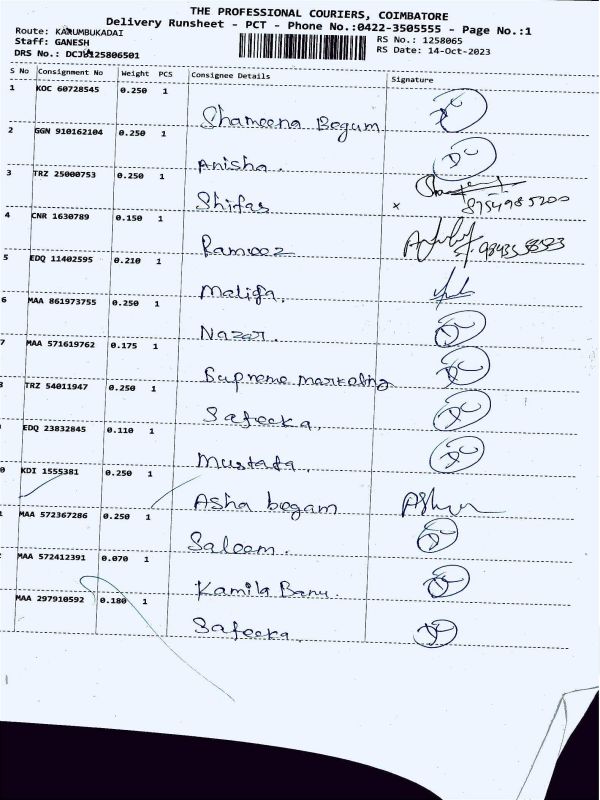 THE PROFESSIONAL COURIERS, COIMBATORE
Delivery Runsheet - PCT - Phone No.:0422-3505555 - Page No.:1
Route: KARUMBUKADAI
Staff: GANESH
RS No.: 1258065
DRS No.: DCJ
RS Date: 14-Oct-2023
S No Consignment No Weight PCS Consignee Details Signature
1 KOC 60728545 0.250 1 Shameena Begum DC
2 GGN 910162104 0.250 1 Anisha. DC
3 TRZ 25000753 0.250 1 Shifas x 8754985200
4 CNR 1630789 0.150 1 Rameez
5 EDQ 11402595 0.210 1 Malifa.
6 MAA 861973755 0.250 1 Nazar. DC
7 MAA 571619762 0.175 1 Supreme marketing DC
8 TRZ 54011947 0.250 1 Safeeka, DC
EDQ 23832845 0.110 1 Mustafa, DC
0 KDI 1555381 0.250 1 Asha begam
1 MAA 572367286 0.250 1 Saleem. DC
MAA 572412391 0.070 1 Kamila Banu. DC
MAA 297910592 0.180 1 Safeeka. DC